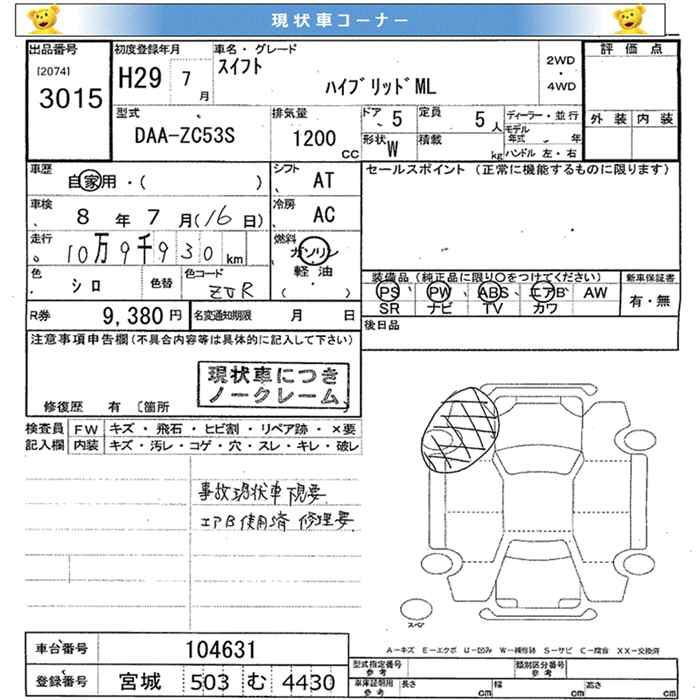 現状車コーナー
出品番号
[2074]
3015
初度登録年月
H29 7月
車名・グレード
スイフト
ハイブリッドML
2WD
・
4WD
評価点
外装 内装
型式
DAA-ZC53S
排気量
1200 CC
ドア 5
定員 5人
形状 W
積載 kg
ディーラー・並行
モデル年式 年
ハンドル 左・右
車歴
自家用・( )
シフト AT
セールスポイント (正常に機能するものに限ります)
車検 8年7月(16日)
冷房 AC
走行 10万9千930km
燃料 ガソリン
軽油
・
( )
色 シロ
色替
色コード ZVR
装備品 (純正品に限り○をつけてください)
PS PW ABS エアB AW
SR ナビ TV カワ
新車保証書
有・無
R券 9,380円
名変通知期限 月 日
後日品
注意事項申告欄(不具合内容等は具体的に記入して下さい)
現状車につき
ノークレーム
修復歴 有 〔箇所
検査員記入欄
FW キズ・飛石・ヒビ割・リペア跡・×要
内装 キズ・汚レ・コゲ・穴・スレ・キレ・破レ
事故現状車 下見要
エアB使用済 修理要
スペア
A-キズ E-エクボ U-凹み W-補修跡 S-サビ C-腐食 XX-交換済
車台番号 104631
登録番号 宮城 503 む 4430
型式指定番号 参考
類別区分番号 参考
車庫証明用 参考
長さ cm
幅 cm
高さ cm